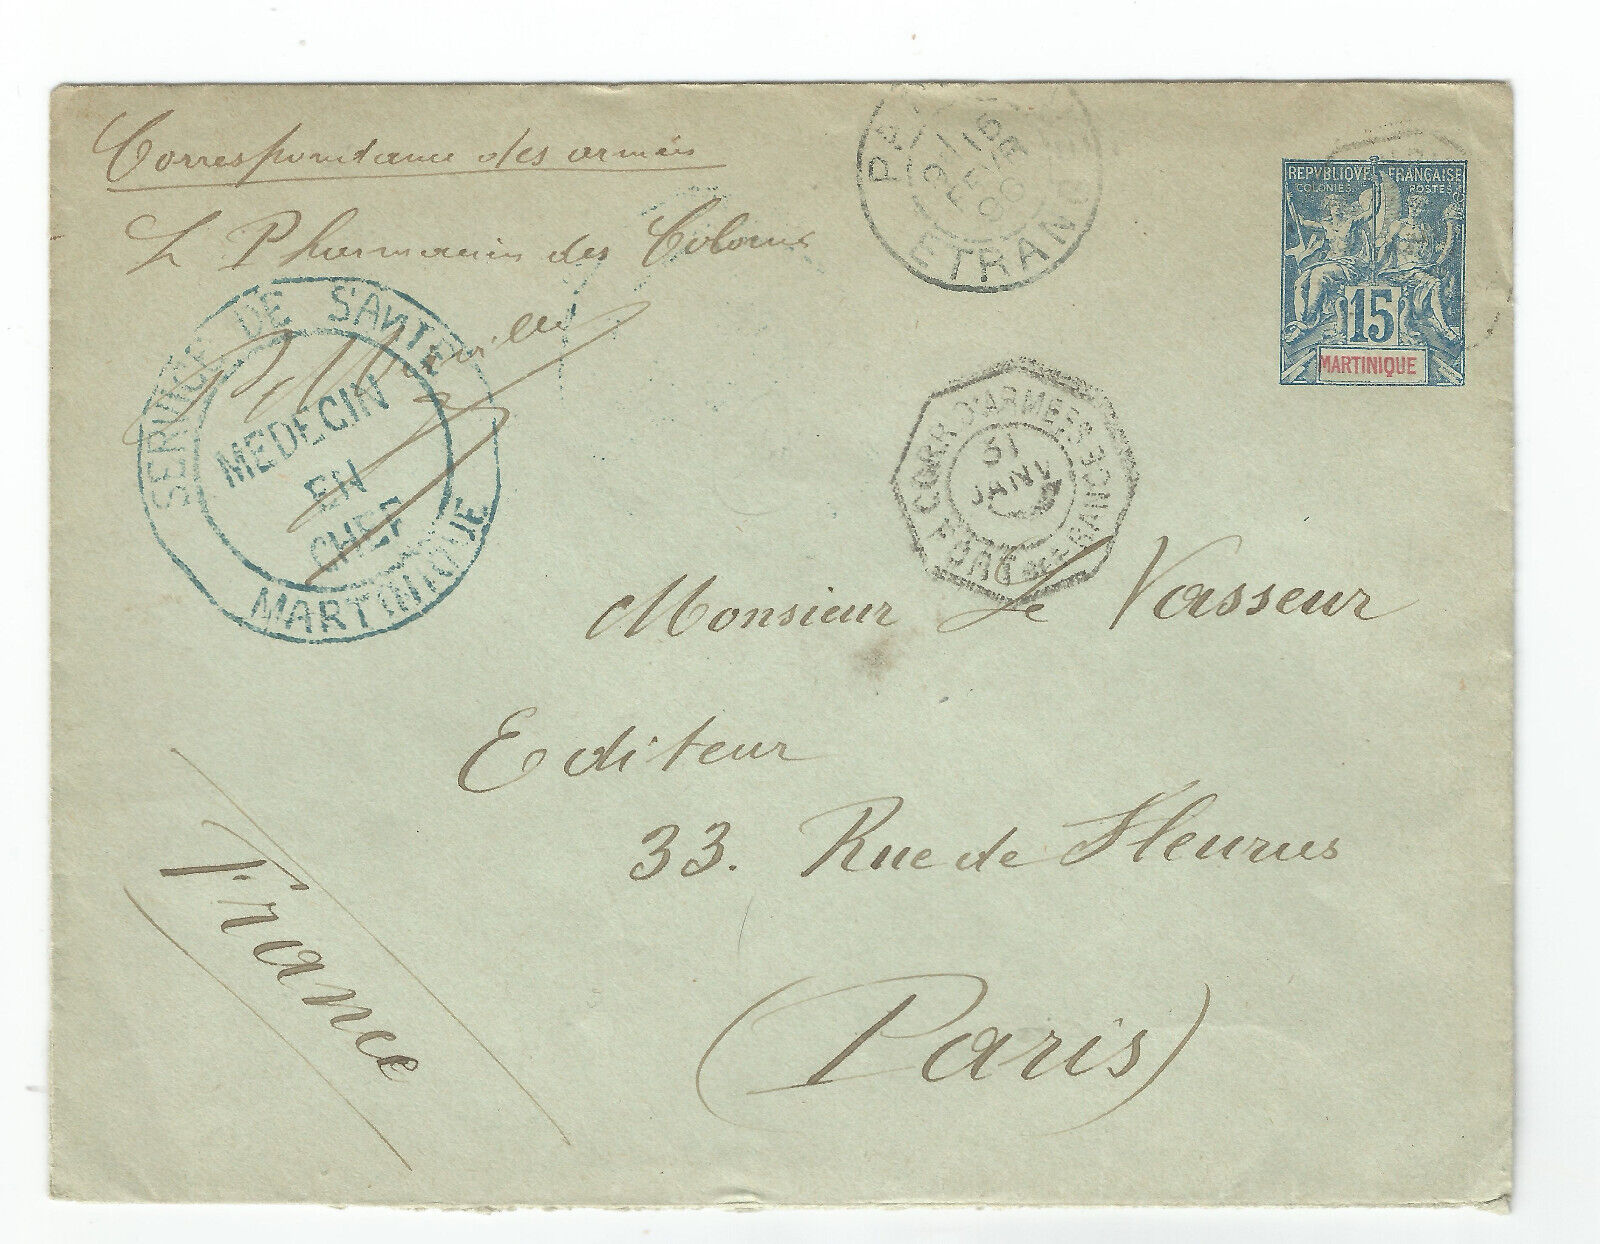 Correspondance des armées
Le Pharmacien des Colonies
SERVICE DE SANTE
MEDECIN
EN
CHEF
MARTINIQUE
15
FEVR
00
ETRANGER
REPVBLIQVE FRANÇAISE
COLONIES POSTES
15
MARTINIQUE
CORR. D'ARMÉES
31
JANV
FORT DE FRANCE
Monsieur Le Vasseur
Editeur
33. Rue de Fleurus
(Paris)
France